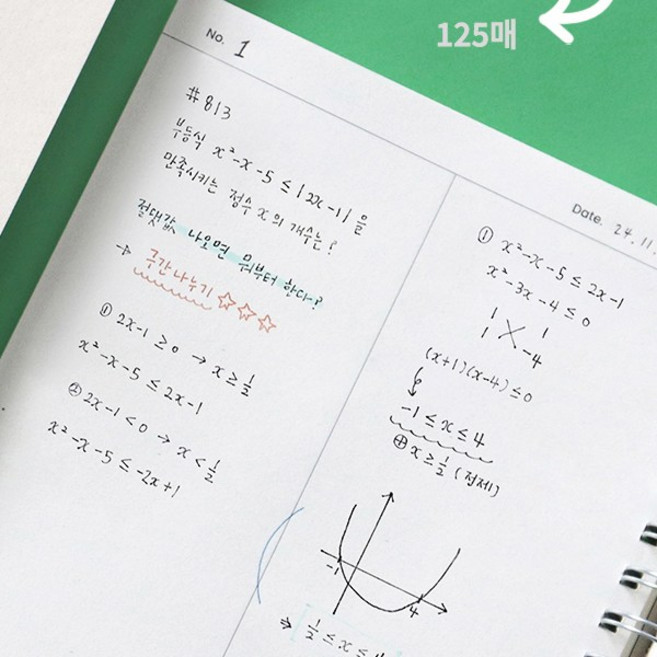 125매
No. 1
Date. 24. 11.
#813
부등식 x²-x-5 ≤ |2x-1| 을
만족시키는 정수 x의 개수는?
절댓값 나오면 뭐부터 한다-?
→ 구간나누기 ☆☆☆
① 2x-1 ≥ 0 → x ≥ 1/2
x²-x-5 ≤ 2x-1
② 2x-1 < 0 → x < 1/2
x²-x-5 ≤ -2x+1
① x²-x-5 ≤ 2x-1
x²-3x-4 ≤ 0
1 1
1 -4
(x+1)(x-4) ≤ 0
-1 ≤ x ≤ 4
⊕ x ≥ 1/2 (전제)
-1 4
⇒ 1/2 ≤ x ≤ 4